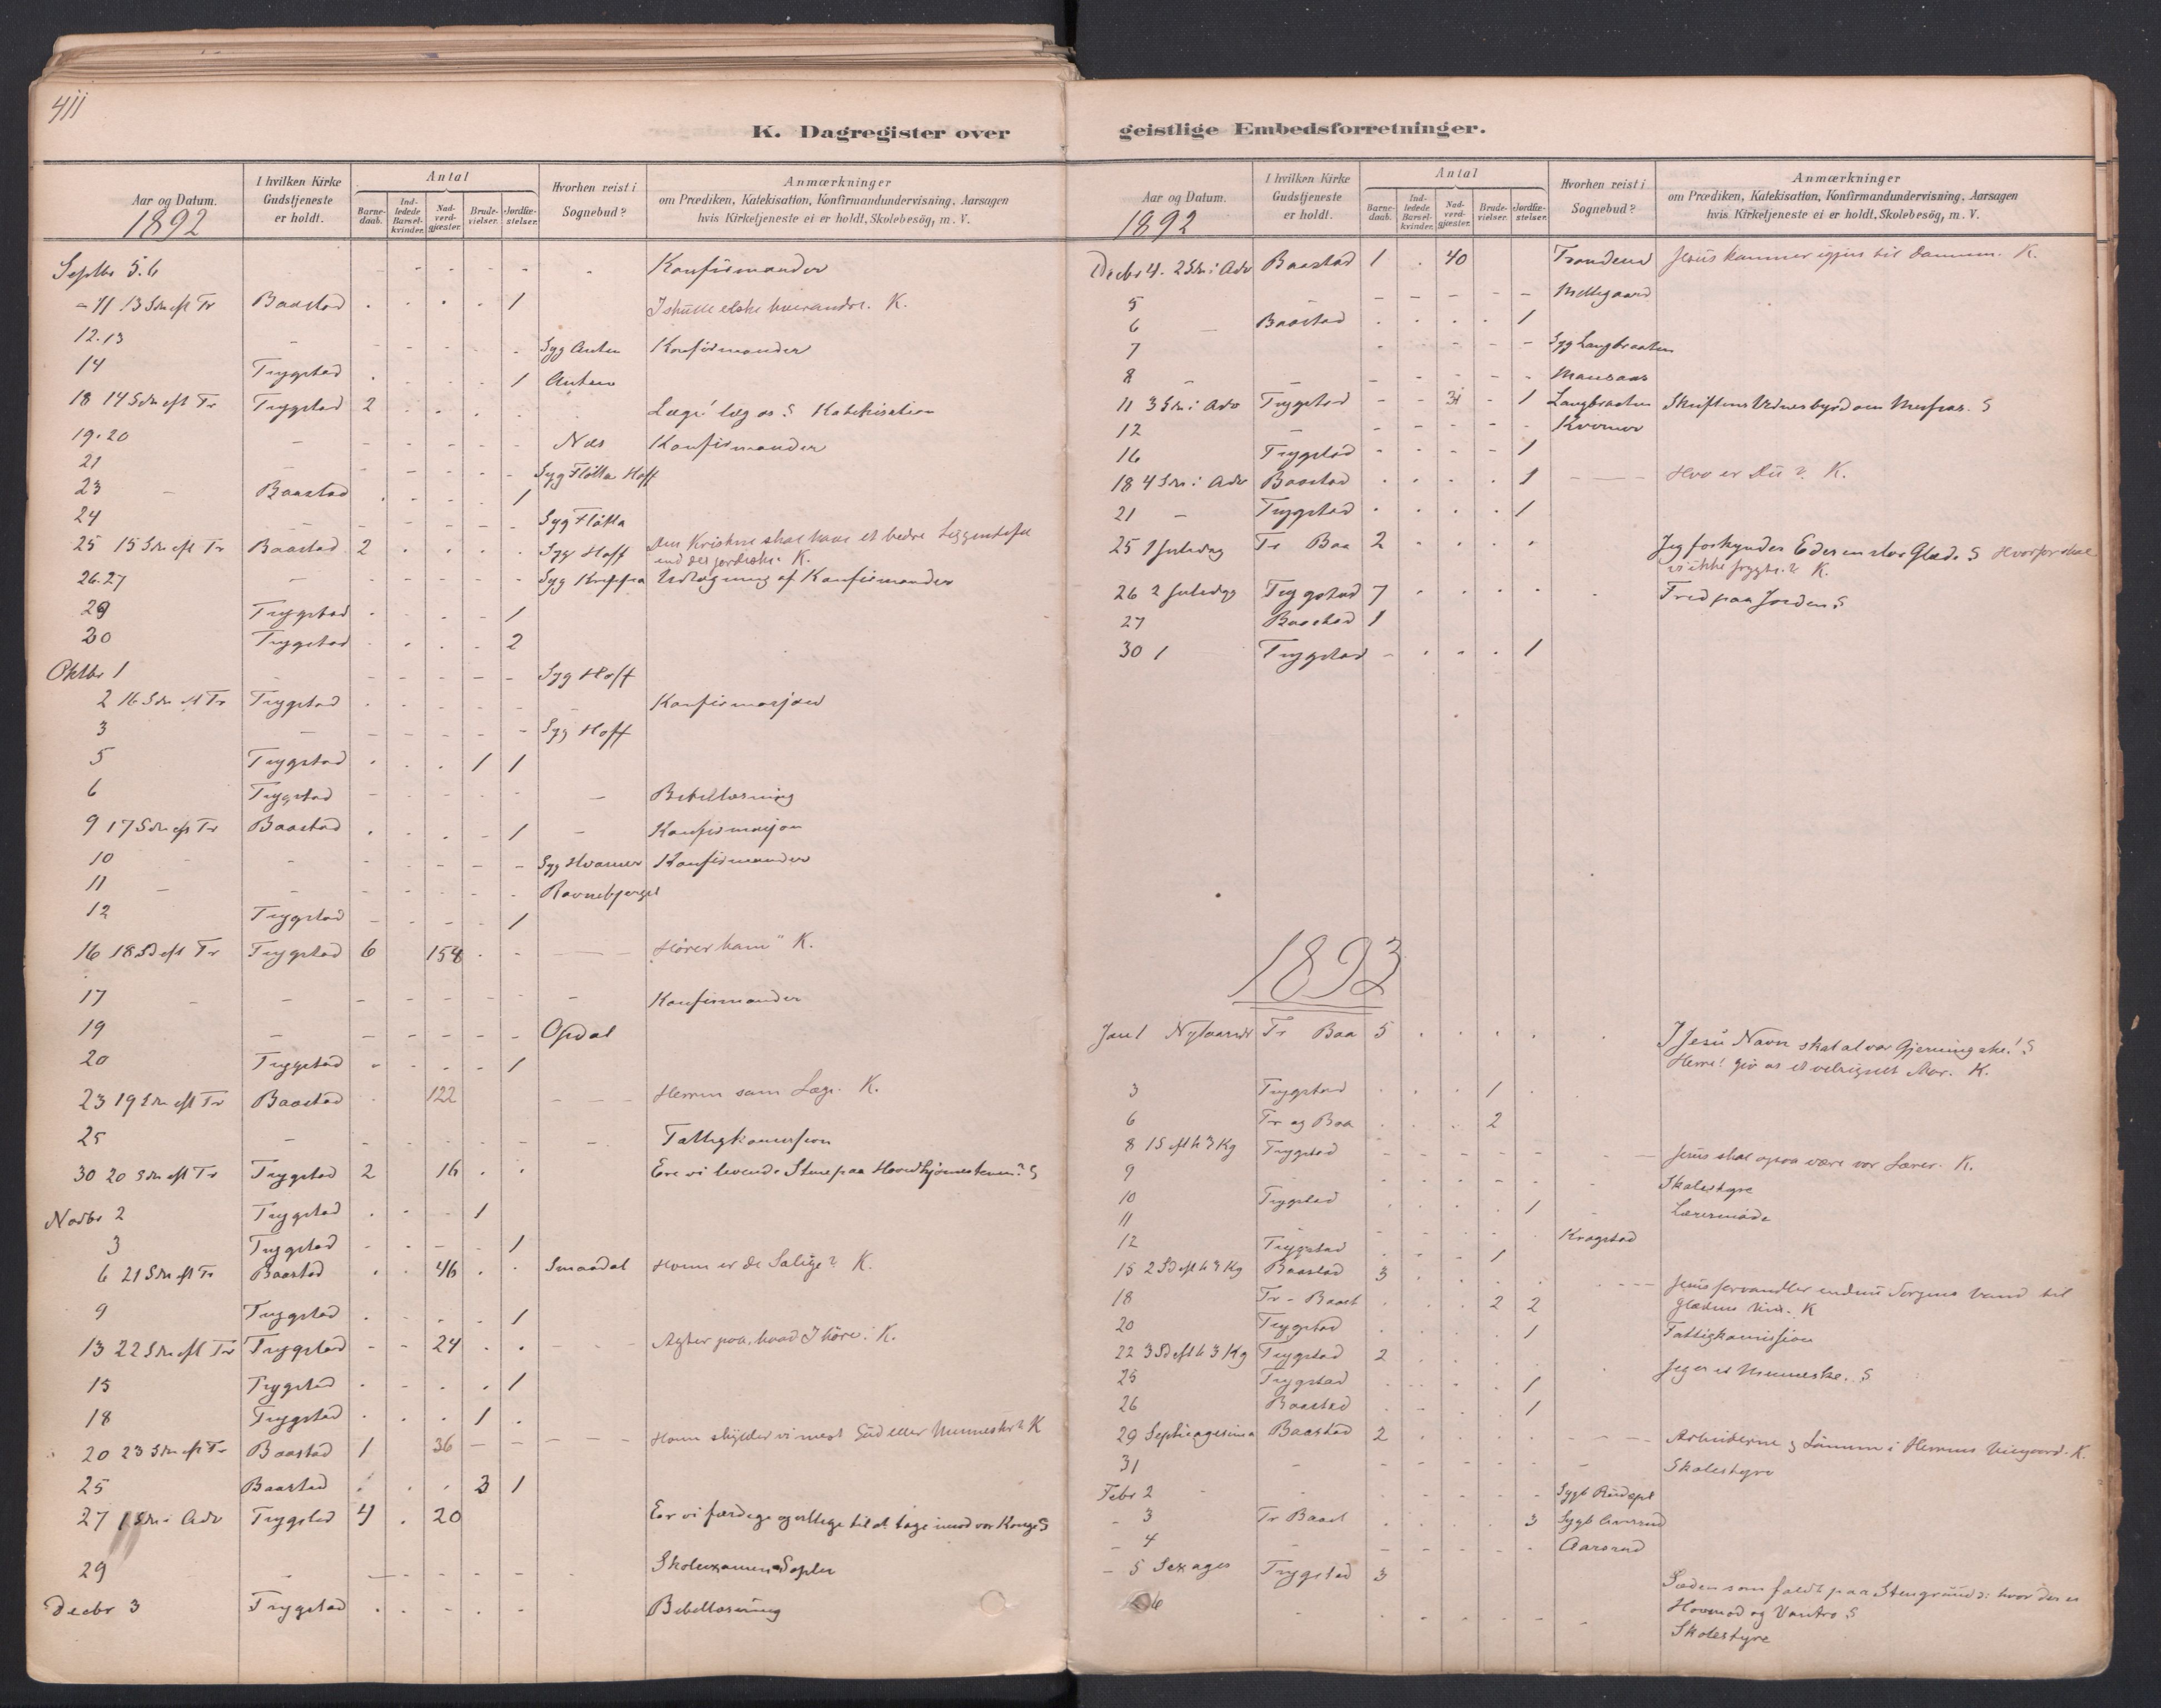 411
K. Dagregister over
Aar og Datum.
1892
I hvilken Kirke Gudstjeneste er holdt.
Antal
Barnedaab.
Indledede Barselkvinder.
Nadverdgjæster.
Brudevielser.
Jordfæstelser.
Hvorhen reist i Sognebud?
Anmærkninger
om Prædiken, Katekisation, Konfirmandundervisning, Aarsagen
hvis Kirketjeneste ei er holdt, Skolebesög, m. V.
Septbr 5.6 - - - - - - Konfirmander
- 11 13 Sdn eft Tr Baastad . . . . 1 I skulle elske hverandre. K.
12.13 - - - - - - Syg Konfirmander
14 Trygstad . . . . 1
18 14 Sdn eft Tr Trygstad 2 . . . . Læge! læg os S Katekisation
19.20 - - - - - - Næs Konfirmander
21 - - - - - - Syg Fløtta Hoff
23 - Baastad . . . . 1
24 - - - - - - Syg Fløtta
25 15 Sdn eft Tr Baastad 2 . . . . Syg Hoff Den Kristne skal have et bedre
end det jordiske. K.
26.27 - - - - - - Syg Udtagning af Konfirmander
29 Trygstad . . . . 1
30 Trygstad . . . . 2
Oktbr 1 - - - - - - Syg Hoff
2 16 Sdn eft Tr Trygstad . . . . . Konfirmasjon
3 - - - - - - Syg Hoff
5 Trygstad . . . 1 1
6 Trygstad - - - - - - Bibellæsning
9 17 Sdn eft Tr Baastad . . . . 1 - Konfirmasjon
10 - - - - - - Syg Hvammer Konfirmander
11 - - - - - - Ravnebjerget
12 Trygstad - - - - 1
16 18 Sd eft Tr Trygstad 6 154 . . - Hører ham" K.
17 - - - - - - - Konfirmander
19 - - - - - - Opdal
20 Trygstad . . . . 1
23 19 Sdn eft Tr Baastad . 122 - - - Herren som Læge. K.
25 - - - - - - - Fattigkommission
30 20 Sdn eft Tr Trygstad 2 16 . . Ere vi levende Stene paa Hovedhjørnestenen? S
Novbr 2 Trygstad . . . 1
3 Trygstad - - - . 1
6 21 Sdn eft Tr Baastad . . 46 . . Smaadal Hvem er de Salige? K.
9 Trygstad . . . . 1
13 22 Sdn eft Tr Trygstad - - 24 . . - - - Agter paa, hvad I höre. K.
15 Trygstad . . . . 1
18 Trygstad . . . 1 .
20 23 Sdn eft Tr Baastad 1 36 - - - - - Hvem skylder vi mest Gud eller Mennesker? K
25 Baastad . . . 3 1
27 1 Sdn i Adv Trygstad 4 . 20 Er vi færdige og villige til at tage imod vor Konge S
29 - - - - - - Skoleexamen
Decbr 3 Trygstad . . . . . Bibellæsning
geistlige Embedsforretninger.
Aar og Datum.
1892
I hvilken Kirke Gudstjeneste er holdt.
Antal
Barnedaab.
Indledede Barselkvinder.
Nadverdgjæster.
Brudevielser.
Jordfæstelser.
Hvorhen reist i Sognebud?
Anmærkninger
om Prædiken, Katekisation, Konfirmandundervisning, Aarsagen
hvis Kirketjeneste ei er holdt, Skolebesög, m. V.
Decbr 4. 2 Sdn i Adv Baastad 1 . 40 Jesus kommer igjen til Dommen. K.
5 - - - - - -
6 - Baastad . . . . 1
7 - - - - - Syg Langbraaten
8 - - - - - - -
11 3 Sdn i Adv Trygstad - - 31 - 1 Langbraaten Skriftens Vidnesbyrd om S
12 - - - - - -
16 Trygstad - - - - 1
18 4 Sdn i Adv Baastad . . . . 1 - - - Hvo er Du? K.
21 - Trygstad . . . . 1
25 1 Juledag Tr Baa 2 . . . . Jeg forkynder Eder en stor Glæde S Hvorfor skal
vi ikke frygte? K.
26 2 Juledag Trygstad 7 . . . . . Fred paa Jorden S
27 Baastad 1
30 1 Trygstad - . . . 1
1893
Jan 1 Nytaarsd Tr Baa 5 . . . . I Jesu Navn skal al vor Gjerning ske! S
Herre! giv os et velsignet Aar. K.
3 Trygstad . . . 1 .
6 Tr og Baa . . . 2
8 1 S eft h 3 Kg Trygstad - - - - - - - Jesus skal ogsaa være vor Lærer. K.
9 - - - - - - Skolestyre
10 Trygstad . . . . 1 - Læremöde
11 - - - - - Kragstad
12 Trygstad . . . 1
15 2 Sd eft h 3 Kg Baastad 3 . . . . - - - Jesus forvandler endnu Sorgens Vand til
Glædens Vin. K
18 Tr - Baast . . . 2 2
20 Trygstad . . . . 1 Fattigkomission
22 3 Sd eft h 3 Kg Trygstad 2 . . . . . Jeg er et Menneske. S
25 Trygstad . . . . 1
26 Baastad . - . . 1
29 Septuagesima Baastad 2 . . . . - - - Arbeiderne og Lönnen i Herrens Viingaard. K.
31 - - - - - - - Skolestyre
Febr 2 - - - - - - Sygb
- 3 Tr Baast . . . . 3 Sygb
- 4 - - - - - - Aarsrud
- 5 Sexages Trygstad 3 Sæden som faldt paa Stengrund
Hovmod og Vantro S
6 - - - - - - - Skolestyre